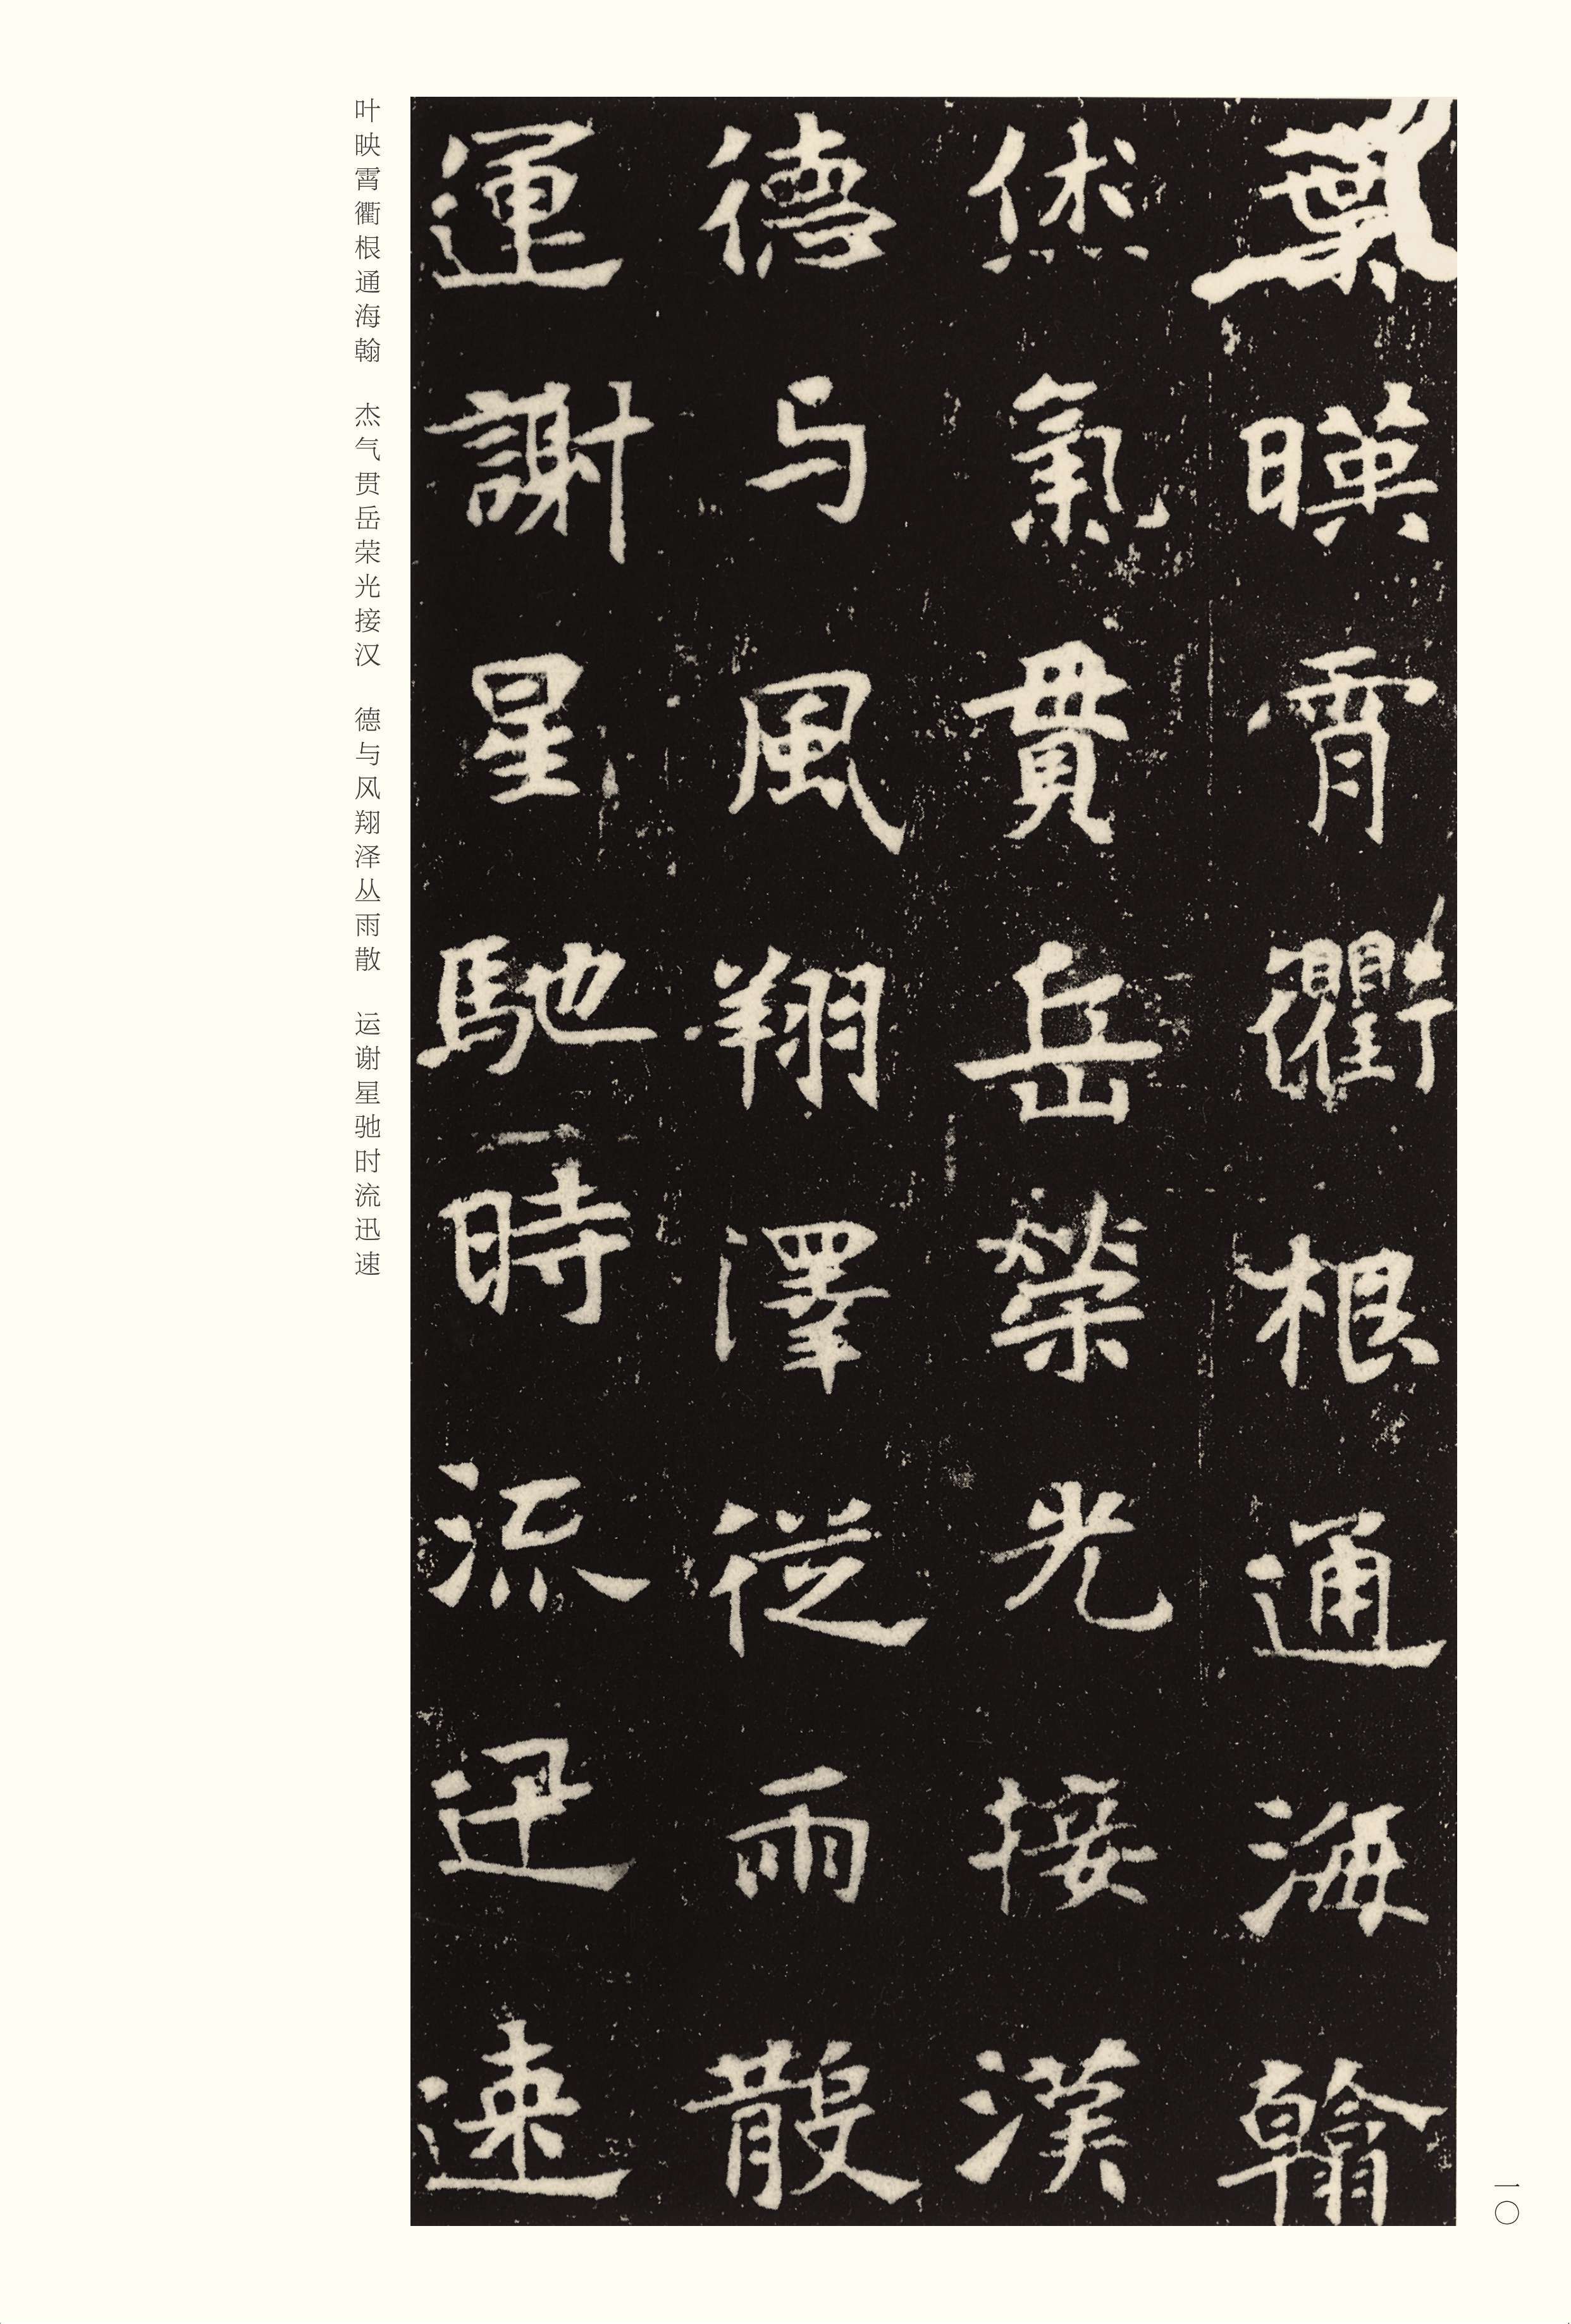 葉暎霄衢根通海翰
傑氣貫岳榮光接漢
德与風翔澤從雨散
運謝星馳時流迅速
叶映霄衢根通海翰　杰气贯岳荣光接汉　德与风翔泽丛雨散　运谢星驰时流迅速
一〇